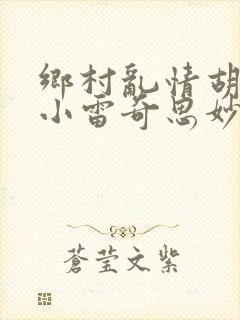 鄉村亂情胡
小雷奇思妙
蒼莹文紫